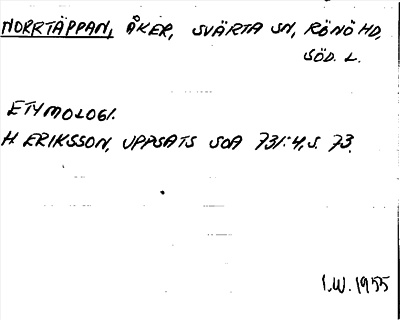 NORRTÄPPAN, ÅKER, SVÄRTA SN, RÖNÖ HD,
SÖD. L.
ETYMOLOGI.
H. ERIKSSON, UPPSATS SOA 731:4, S. 73.
I.W. 1955